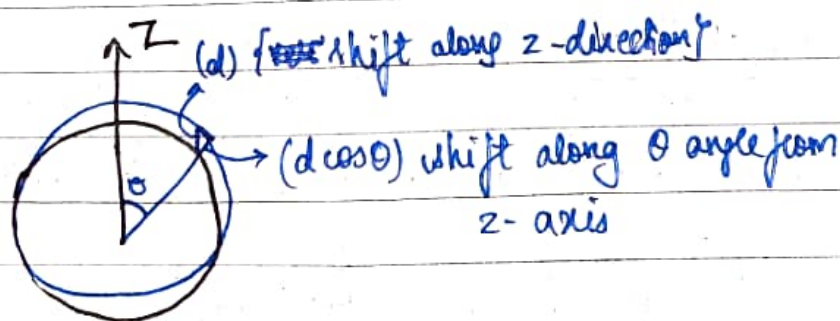 Z
(d) { shift along z-direction}
(d cosθ) shift along θ angle from
z-axis
θ